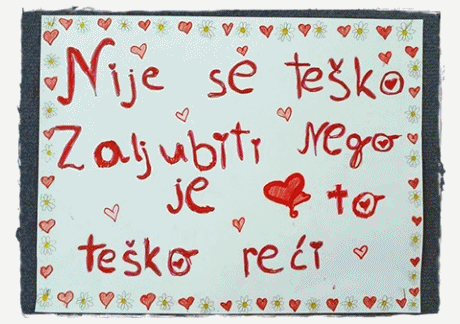 Nije se teško
Zaljubiti nego
je to
teško reći